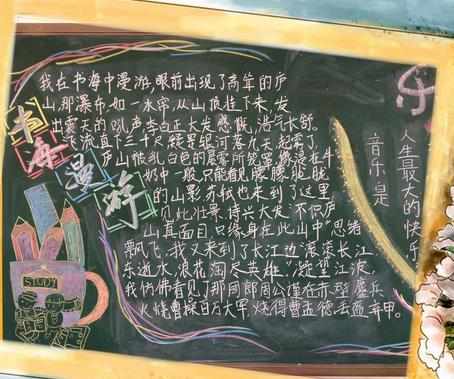 书海漫游
我在书海中漫游,眼前出现了高耸的庐
山,那瀑布如一水帘,从山顶挂下来,发
出震天的吼声,李白正大发感慨,浩气长舒。
飞流直下三千尺,疑是银河落九天起雾了,
庐山被乳白色的晨雾所笼罩,像浸在牛
奶中一般,只能看见朦朦胧胧
的山影,苏轼也来到了这里,
见此壮景,诗兴大发"不识庐
山真面目,只缘身在此山中"思绪
飘飞,我又来到了长江边"滚滚长江
东逝水,浪花淘尽英雄!"江波,
我仿佛看见了那周郎周公瑾在赤壁
火烧曹操百万大军,烧得曹孟德弃甲。
STUDY
乐
音乐是
人生最大的快乐